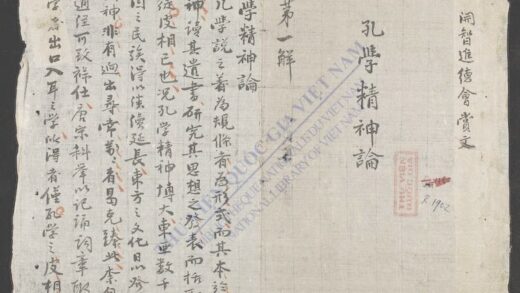 開智進德會賞文
孔學精神論
第一解
學精神論
孔學說之着為規條者為形式而其本於
神讀其遺書研究其思想之發表而括
從皮相已也況孔學精神博大東亞數千
因之民族得以綿延長東方之文化日以
神非有逈出尋常萬萬者曷克臻此奈
通經可致祥仕唐宋科舉以記誦詞章取
學者出口入耳之學以得者僅孔學之皮相
THƯ VIỆN QUỐC GIA VIỆT NAM
NATIONAL LIBRARY OF VIETNAM
THƯ VIỆN QUỐC GIA
R.1902